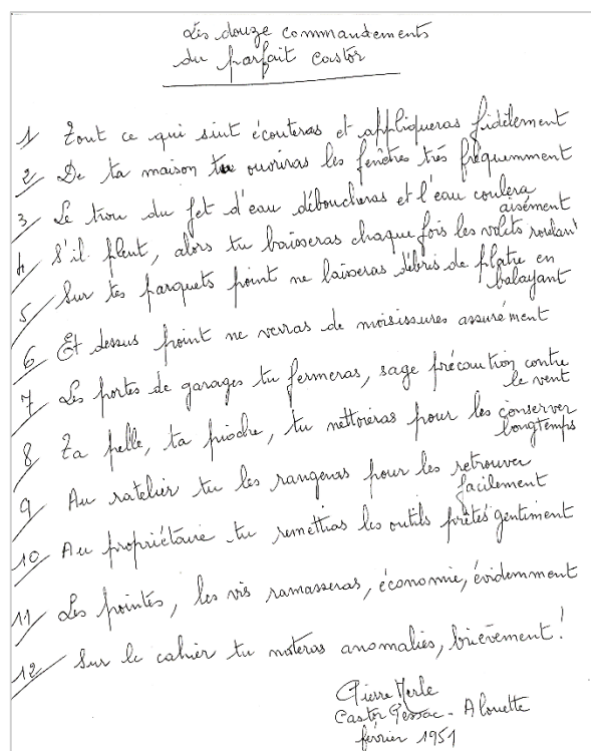 Les douze commandements
du parfait castor
1 Tout ce qui suit écouteras et appliqueras fidèlement
2 De ta maison tu ouvriras les fenêtres très fréquemment
3 Le trou du jet d'eau déboucheras et l'eau coulera
aisément
4 S'il pleut, alors tu baisseras chaque fois les volets roulant
5 Sur tes parquets point ne laisseras débris de platre en
balayant
6 Et dessus point ne verras de moisissures assurément
7 Les portes de garages tu fermeras, sage précaution contre
le vent
8 Ta pelle, ta pioche, tu nettoieras pour les conserver
longtemps
9 Au ratelier tu les rangeras pour les retrouver
facilement
10 Au propriétaire tu remettras les outils prêtés gentiment
11 Les pointes, les vis ramasseras, économie, évidemment
12 Sur le cahier tu noteras anomalies, brièvement!
Pierre Merle
Castor Pessac - Alouette
février 1951